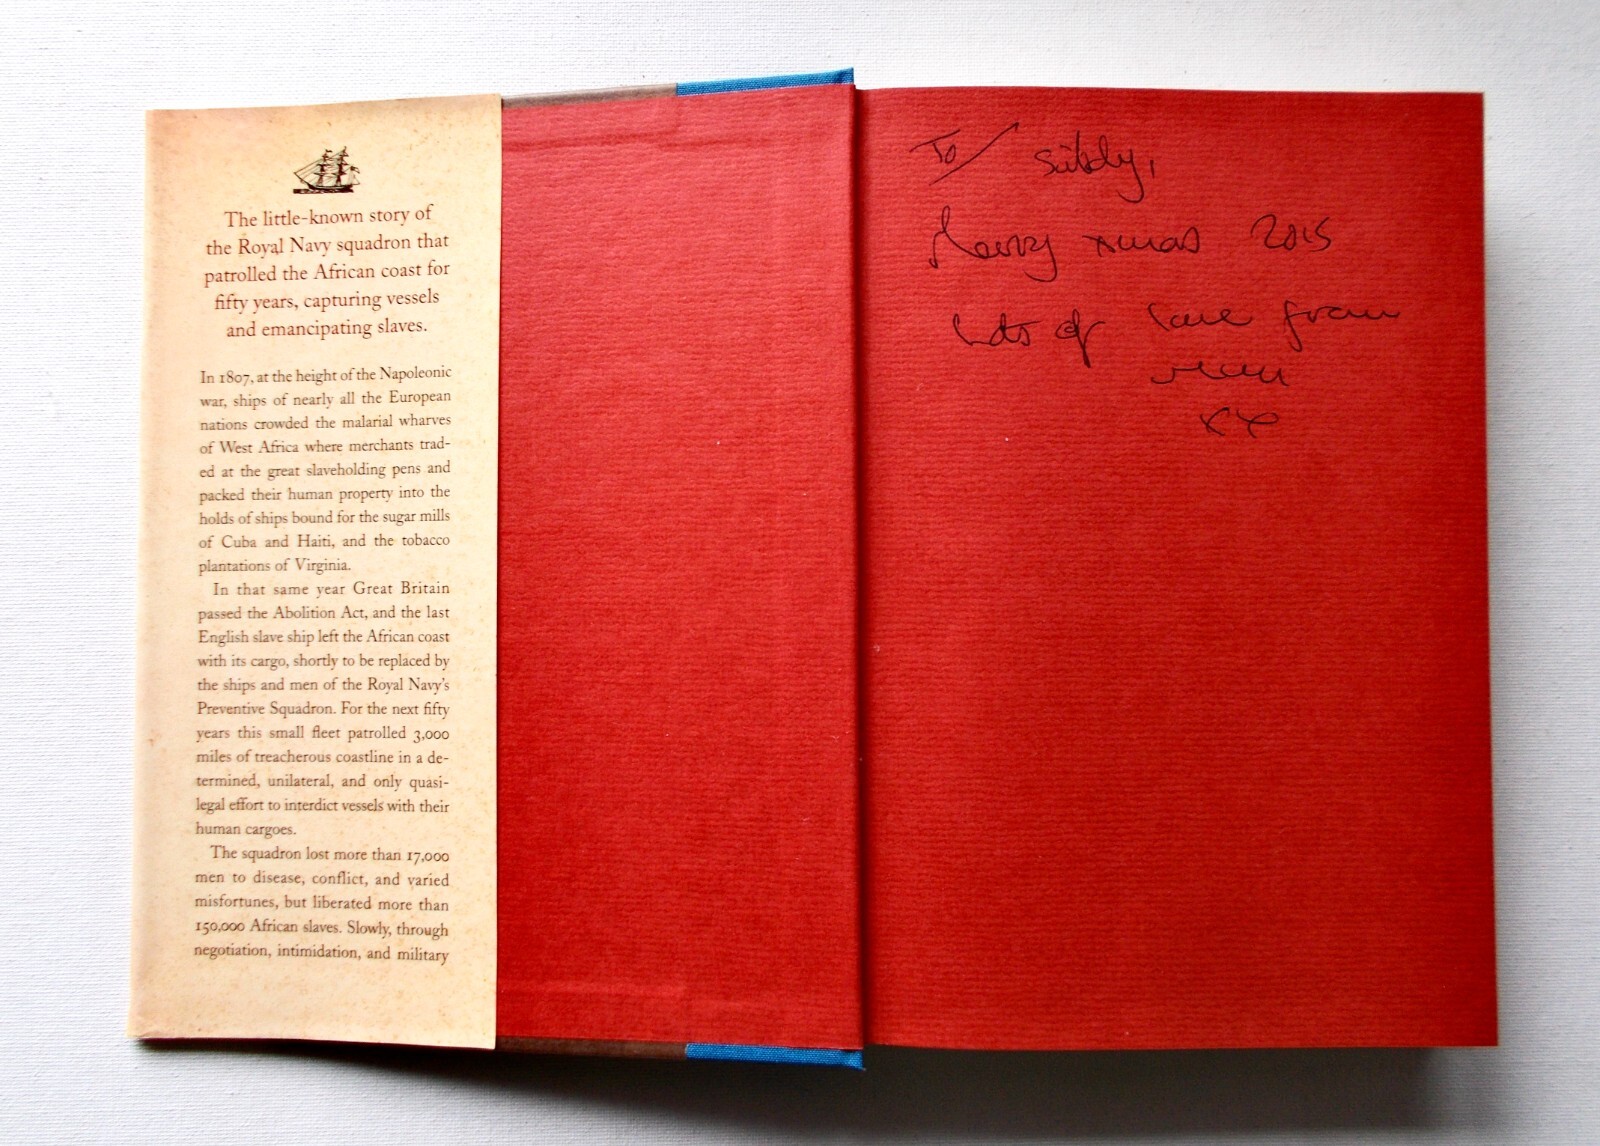 The little-known story of
the Royal Navy squadron that
patrolled the African coast for
fifty years, capturing vessels
and emancipating slaves.
In 1807, at the height of the Napoleonic
war, ships of nearly all the European
nations crowded the malarial wharves
of West Africa where merchants trad-
ed at the great slaveholding pens and
packed their human property into the
holds of ships bound for the sugar mills
of Cuba and Haiti, and the tobacco
plantations of Virginia.
In that same year Great Britain
passed the Abolition Act, and the last
English slave ship left the African coast
with its cargo, shortly to be replaced by
the ships and men of the Royal Navy's
Preventive Squadron. For the next fifty
years this small fleet patrolled 3,000
miles of treacherous coastline in a de-
termined, unilateral, and only quasi-
legal effort to interdict vessels with their
human cargoes.
The squadron lost more than 17,000
men to disease, conflict, and varied
misfortunes, but liberated more than
150,000 African slaves. Slowly, through
negotiation, intimidation, and military
To/
Merry xmas 2015
Lots of love from
xx